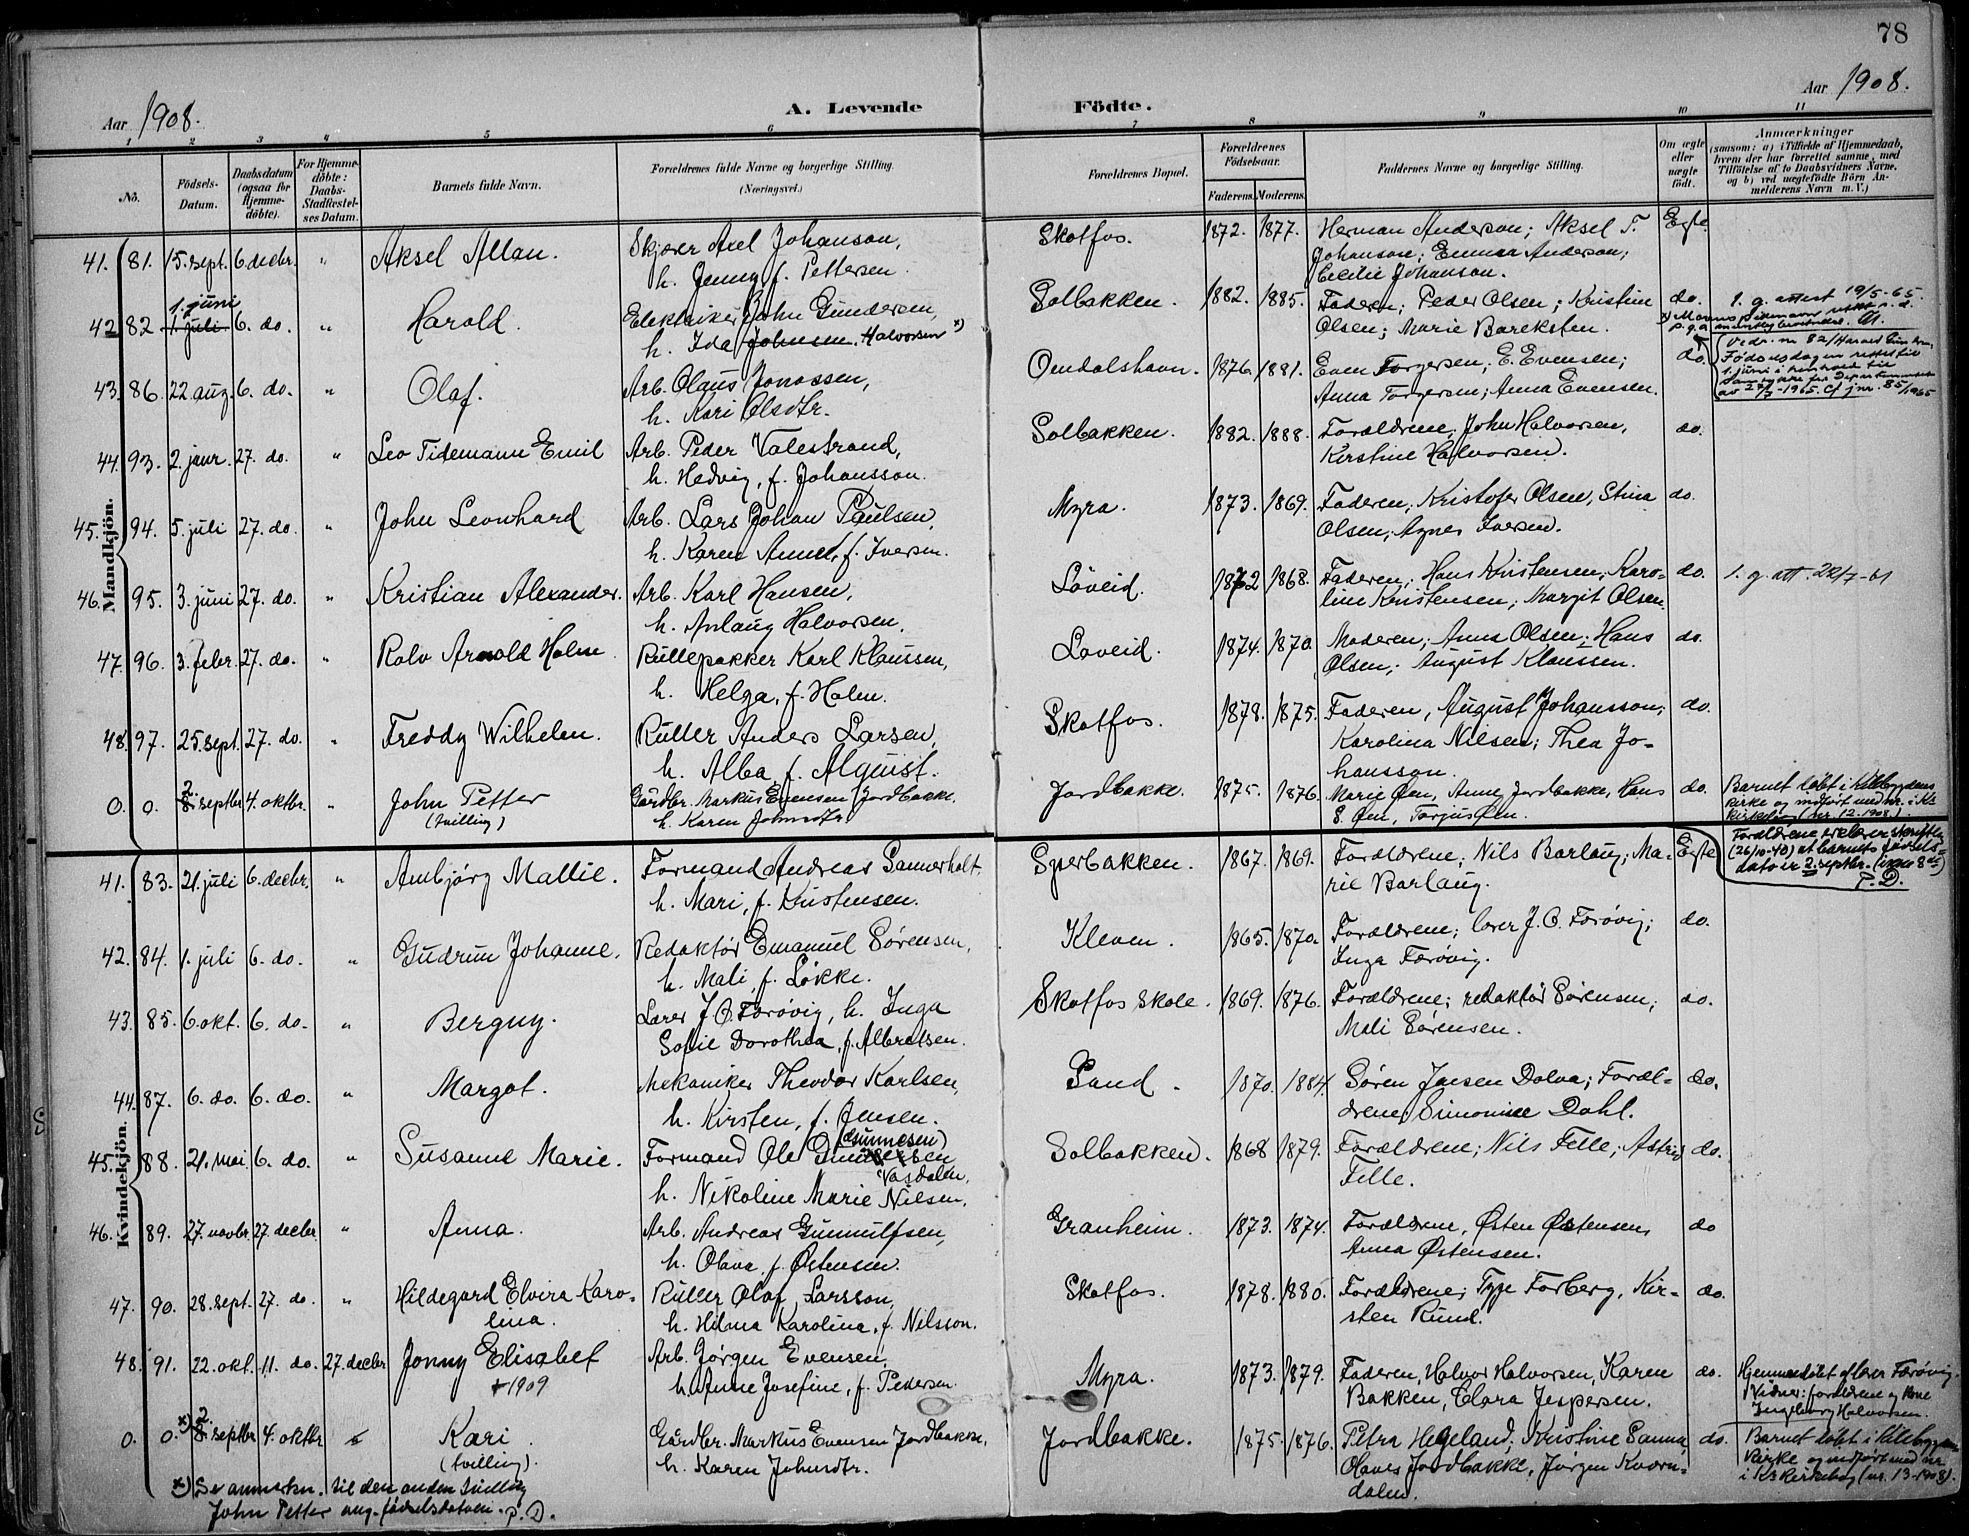 78
Aar 1908.
A. Levende
Födte.
Aar 1908.
1 2 3 4 5 6 7 8 9 10 11
No.
Födsels-
Datum.
Daabsdatum
(ogsaa for
Hjemme-
döbte).
For Hjemme-
döbte:
Daabs-
Stadfæstel-
ses Datum.
Barnets fulde Navn.
Forældrenes fulde Navne og borgerlige Stilling.
(Næringsvei.)
Forældrenes Bopæl.
Forældrenes
Födselsaar.
Faderens. Moderens.
Faddernes Navne og borgerlige Stilling.
Om ægte
eller
uægte
født.
Anmærkninger
(saasom: a) i Tilfælde af Hjemmedaab,
hvem der har forrettet samme, med
Tilföielse af to Daabsvidners Navne,
og b) ved uægtefödte Börn An-
melderens Navn m. V.)
Mandkjön.
41. 81. 15. sept. 6 decbr. " Aksel Allan. Skjærer Axel Johanson, Skotfos. 1872. 1877. Herman Anderson; Aksel T. Egte.
h. Jenny f. Pettersen. Johanson; Emma Anderson;
Cecilie Johanson.
1. juni
42 82 1. juli 6. do. " Harald. Elektriker John Gundersen, Solbakken. 1882. 1885. Faderen; Peder Olsen; Kristine do. 1. g. attest 19/5-65.
h. Ida Johnsen. Halvorsen x) Olsen; Marie Bareksten.
43. 86. 22 aug. 6. do. " Olaf. Arb. Olaus Jonassen, Omdalshavn. 1876. 1881. Even Torgersen; E. Evensen; do.
h. Kari Olsdtr. Anna Torgersen; Anna Evensen.
Vedr. nr. 82/Harald
Fødselsdagen rettet til
1. juni i henhold til
av 27/5-1965. Cf jnr. 85/1965
44. 93. 2. janr. 27. do. " Leo Tidemann Emil Arb. Peder Valestrand, Solbakken. 1882. 1888. Forældrene, John Halvorsen, do.
h. Hedvig, f. Johansson. Kirstine Halvorsen.
45. 94. 5. juli 27. do. " John Leonhard Arb. Lars Johan Paulsen, Myra. 1873. 1869. Faderen; Kristofer Olsen, Stina do.
h. Karen Anne, f. Iversen. Olsen; Agnes Iversen.
46. 95. 3. juni 27. do. " Kristian Alexander. Arb. Karl Hansen, Löveid. 1872 1868. Faderen; Hans Kristensen, Karo- do. 1. g. att. 22/7-61
h. Anlaug Halvorsen. line Kristensen; Margit Olsen.
47. 96. 3. febr. 27. do. " Rolv Arnold Holm Rullepakker Karl Klaussen, Loveid. 1874. 1870. Moderen; Anna Olsen; Hans do.
h. Helga, f. Holm. Olsen; August Klaussen.
48. 97. 25. sept. 27. do. " Freddy Wilhelm. Ruller Anders Larsen, Skotfos. 1878. 1875. Faderen, August Johansson; do.
h. Alba, f. Alquist. Karolina Nilsen; Thea Jo-
hansson.
2.
0. 0. 8. septbr 4. oktbr. " John Petter Gårdbr. Markus Evensen Jordbakke, Jordbakke. 1875. 1876. Marie Øen, Anne Jordbakke, Hans do. Barnet döbt i Kilebygdens
(tvilling) h. Karen Johnsdtr. S. Øen, Torjus Øen. kirke og indført med nr. i Ks
kirkebog (nr. 12-1908).
Forældrene erklærer skriftlig
(26/10-40) at barnets fødsels-
dato er 2. septbr. (ikke 8de)
P.D.
Kvindekjön.
41. 83. 21. juli 6. decbr. " Ambjørg Mallie. Formand Andreas Sannerholt. Sperbakken. 1867. 1869. Forældrene; Nils Barlaug; Ma- Egte
h. Mari, f. Kristensen. rie Barlaug.
42. 84. 1. juli 6. do. " Gudrun Johanne. Redaktør Emanuel Sørensen, Kleven. 1865. 1870. Forældrene; lærer J. O. Færøvig; do.
h. Mali, f. Løkke. Inga Færøvig.
43. 85. 6. okt. 6. do. " Bergny. Lærer J. O. Færøvig, h. Inga Skotfos Skole. 1869. 1876. Forældrene; redaktør Sørensen; do.
Sofie Dorothea, f. Albretsen. Mali Sørensen.
44. 87. 6. do. 6. do. " Margot. Mekaniker Theodor Karlsen, Sand. 1870. 1884. Søren Jensen Dolva; Foræl- do.
h. Kirsten, f. Jensen. drene; Simonine Dahl.
(Gunnesen)
45. 88. 21. mai 6. do. " Susanne Marie. Formand Ole Gundersen Solbakken. 1868 1879. Forældrene; Nils Fille; Astrid do.
Vasdalen.
h. Nikoline Marie Nilsen. Fille.
46. 89. 27. novbr. 27. decbr. " Anna. Arb. Andreas Gunnulfsen, Granheim. 1873. 1874. Forældrene, Østen Østensen, do
h. Olava f. Østensen. Anna Østensen.
47. 90. 28. sept. 27. do. " Hildegard Elvira Karo- Ruller Olaf Larsson, Skotfos. 1878. 1880. Forældrene; Tyge Forberg, Kir- do.
lina. h. Hilma Karolina, f. Nilsson. sten Rund.
48. 91. 22. okt. 11. do. 27. decbr Jonny Elisabet Arb. Jørgen Evensen, Myra. 1873. 1879. Faderen, Halvor Halvorsen, Karen do. Hjemmedøbt af lærer Færøvig.
+ 1909 h. Anne Josefine, f. Pedersen. Bakken, Clara Jespersen. Vidner: forældrene og kone
Ingeborg Halvorsen.
x) 2.
0. 0. 8. septbr 4. oktbr Kari Gårdbr. Markus Evensen Jordbakke, Jordbakke. 1875. 1876. Petra Hegeland, Kristine Sanna, do. Barnet döbt i Kilebygdens
(tvilling). h. Karen Johnsdtr. Olaves Jordbakke, Jørgen Kværn- kirke og indført med nr.
dalen. i Ks kirkebog (nr. 13-1908).
x) Se anmerkn. til den anden tvilling
John Petter ang. fødselsdatoen. P.D.